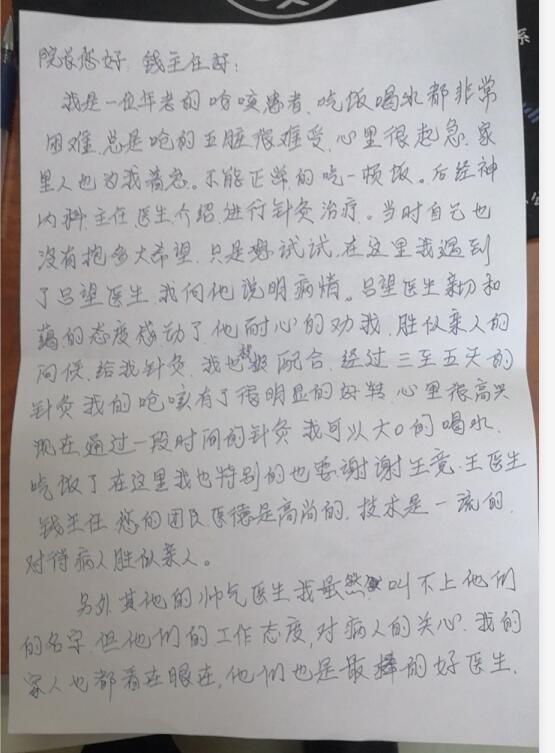 系
院长您好 钱主任好:
我是一位年老的呛咳患者、吃饭喝水都非常
困难、总是呛的五脏很难受、心里很起急、家
里人也为我着急。不能正常的吃一顿饭。后经神
内科、主任、医生介绍、进行针灸治疗。当时自己也
没有抱多大希望、只是想试试、在这里我遇到
了吕望医生、我向他说明病情。吕望医生亲切和
蔼的态度感动了、他耐心的劝我、胜似亲人的
问候、给我针灸、我也积极配合、经过三至五天的
针灸我的呛咳有了很明显的好转、心里很高兴
现在通过一段时间的针灸我可以大口的喝水、
吃饭了在这里我也特别的也要谢谢王竞、王医生
钱主任 您的团队医德是高尚的、技术是一流的、
对待病人胜似亲人。
另外其他的帅气医生我虽然叫不上他们
的名字、但他们的工作态度、对病人的关心、我的
家人也都看在眼在、他们也是最棒的好医生、